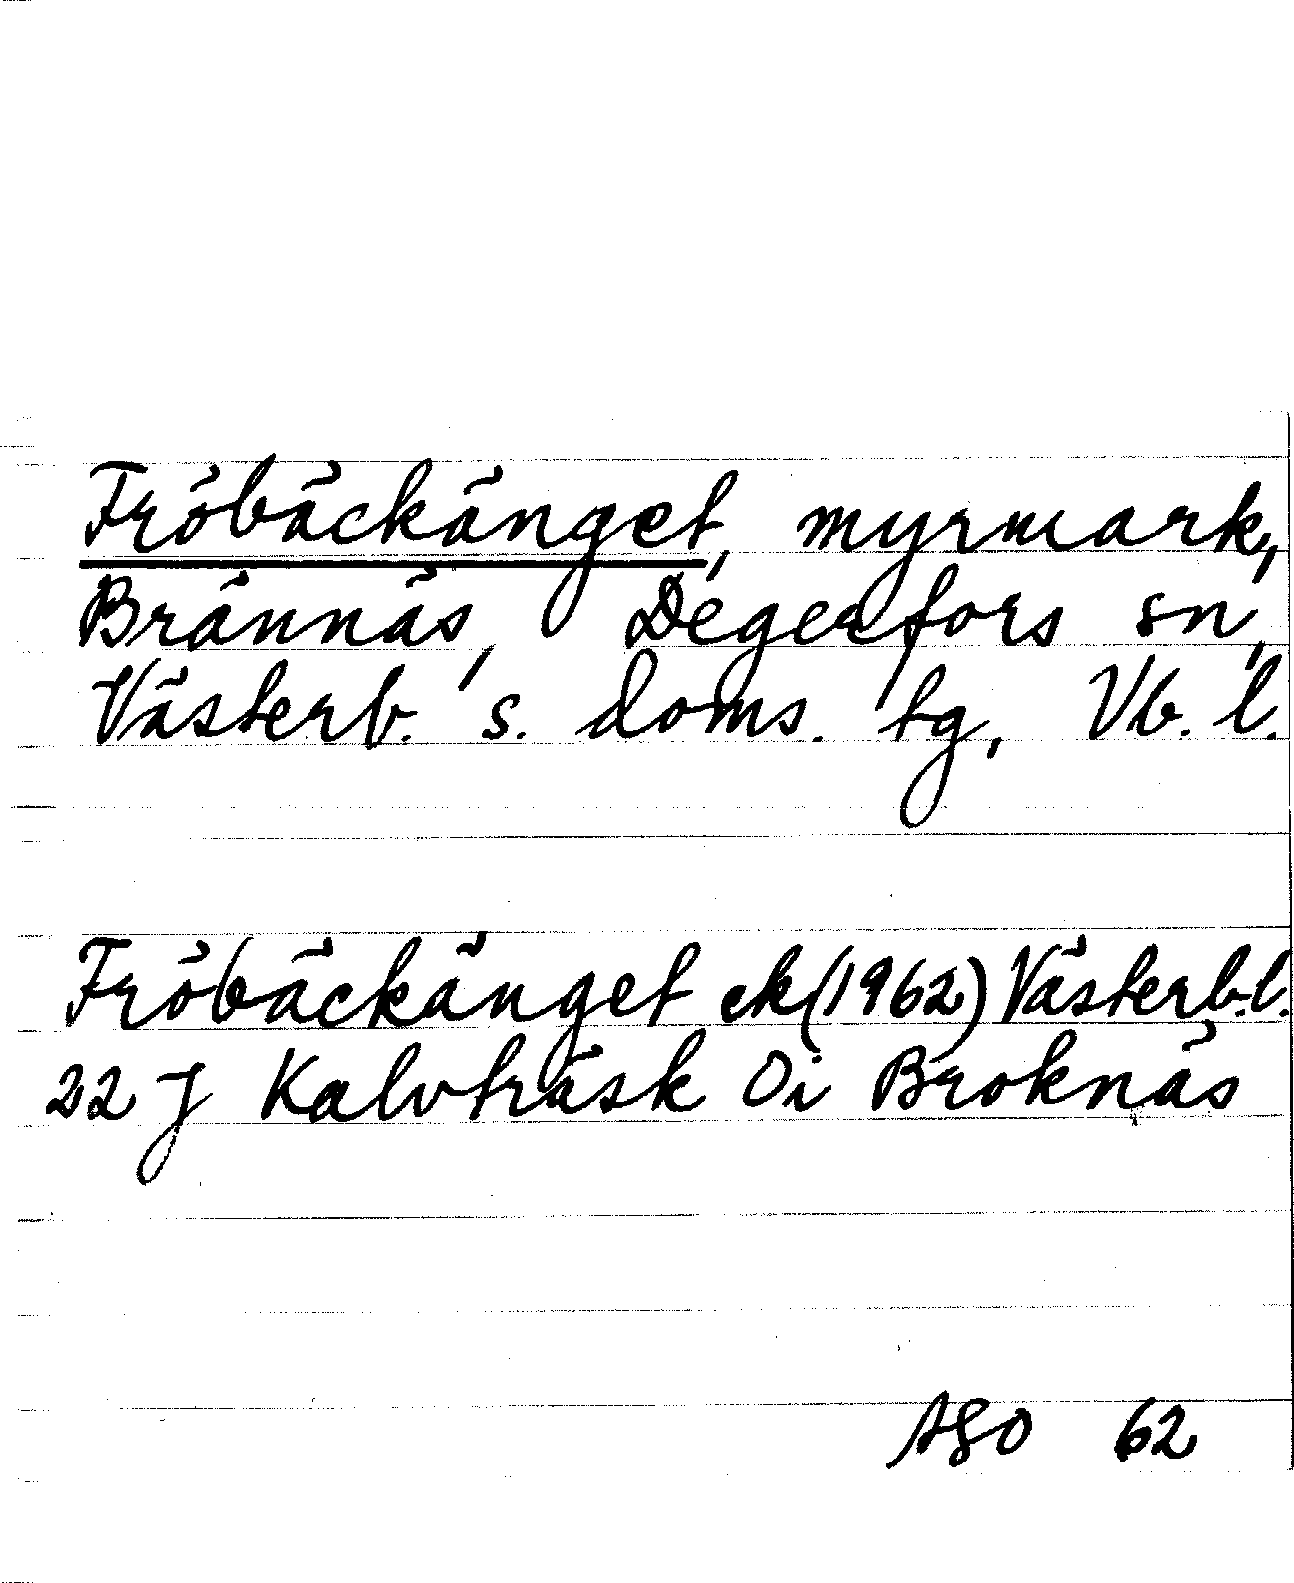 Fröbäckänget, myrmark,
Brännäs, Degerfors sn,
Västerb. s. doms. tg, Vb. l.
Fröbäckänget ek (1962) Västerb. l.
22 J Kalvträsk 0i Broknäs
ASO 62